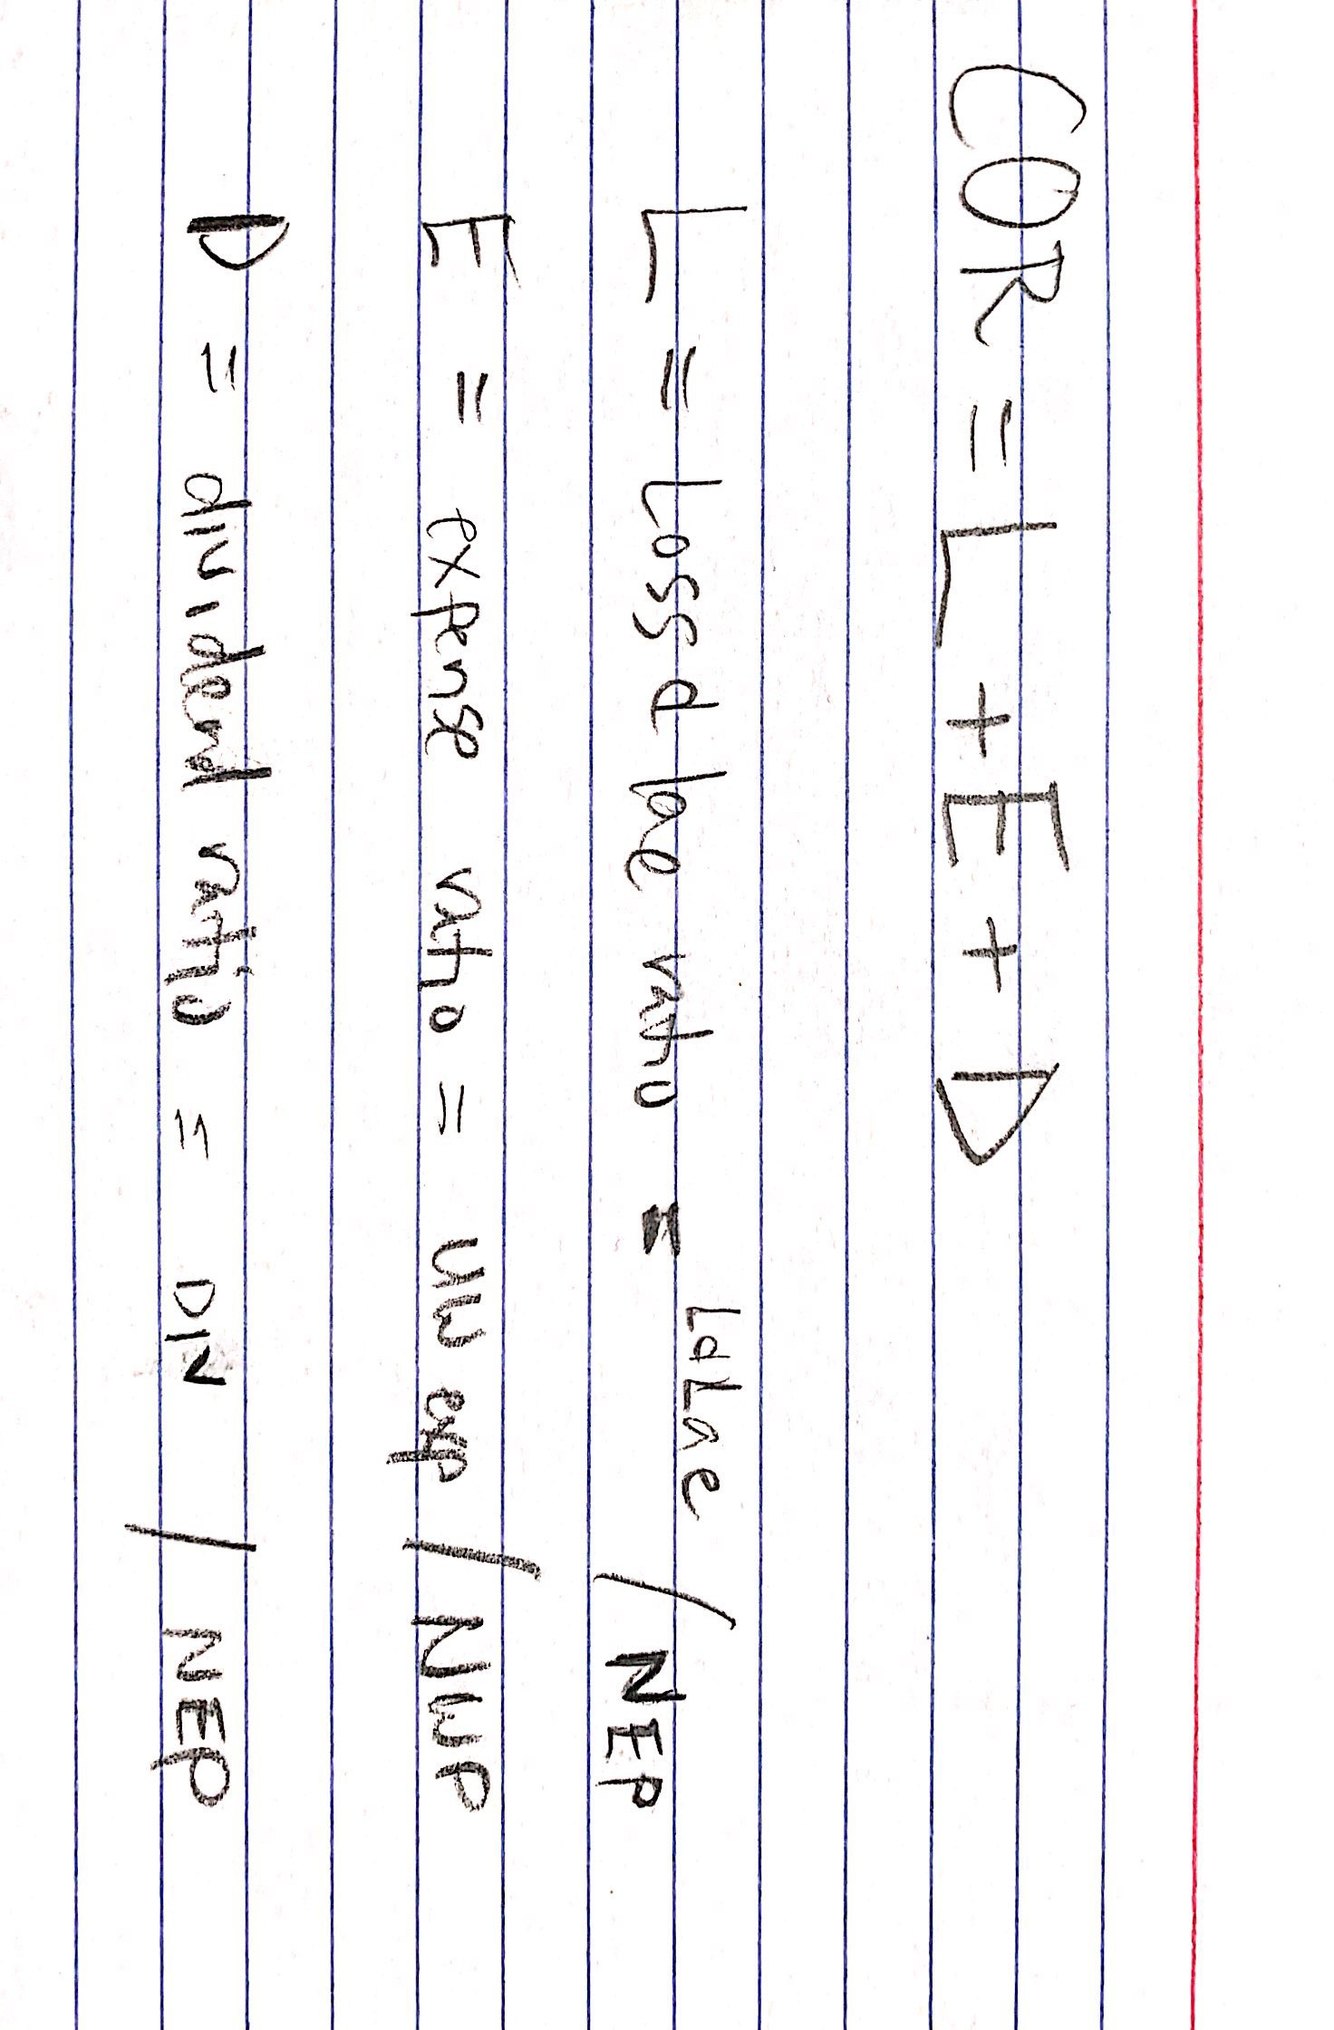 COR = L + E + D
L = Loss & lae ratio = L&Lae / NEP
E = expense ratio = UW exp / NWP
D = dividend ratio = DIV / NEP